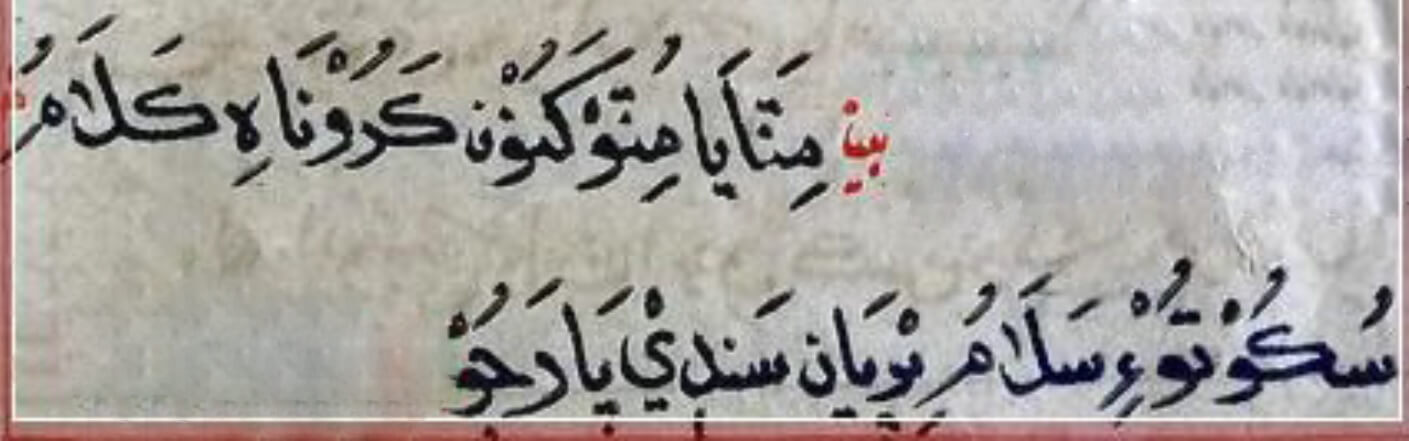 بيتْ مِتَاَيا مِنتُوْ كَنُوْن كَرُوْنَاهِ كَلَامُ
سُكُوْتُوْءِ سَلَامُ پِرْيَان سَندِيْ پَارَجُوْ